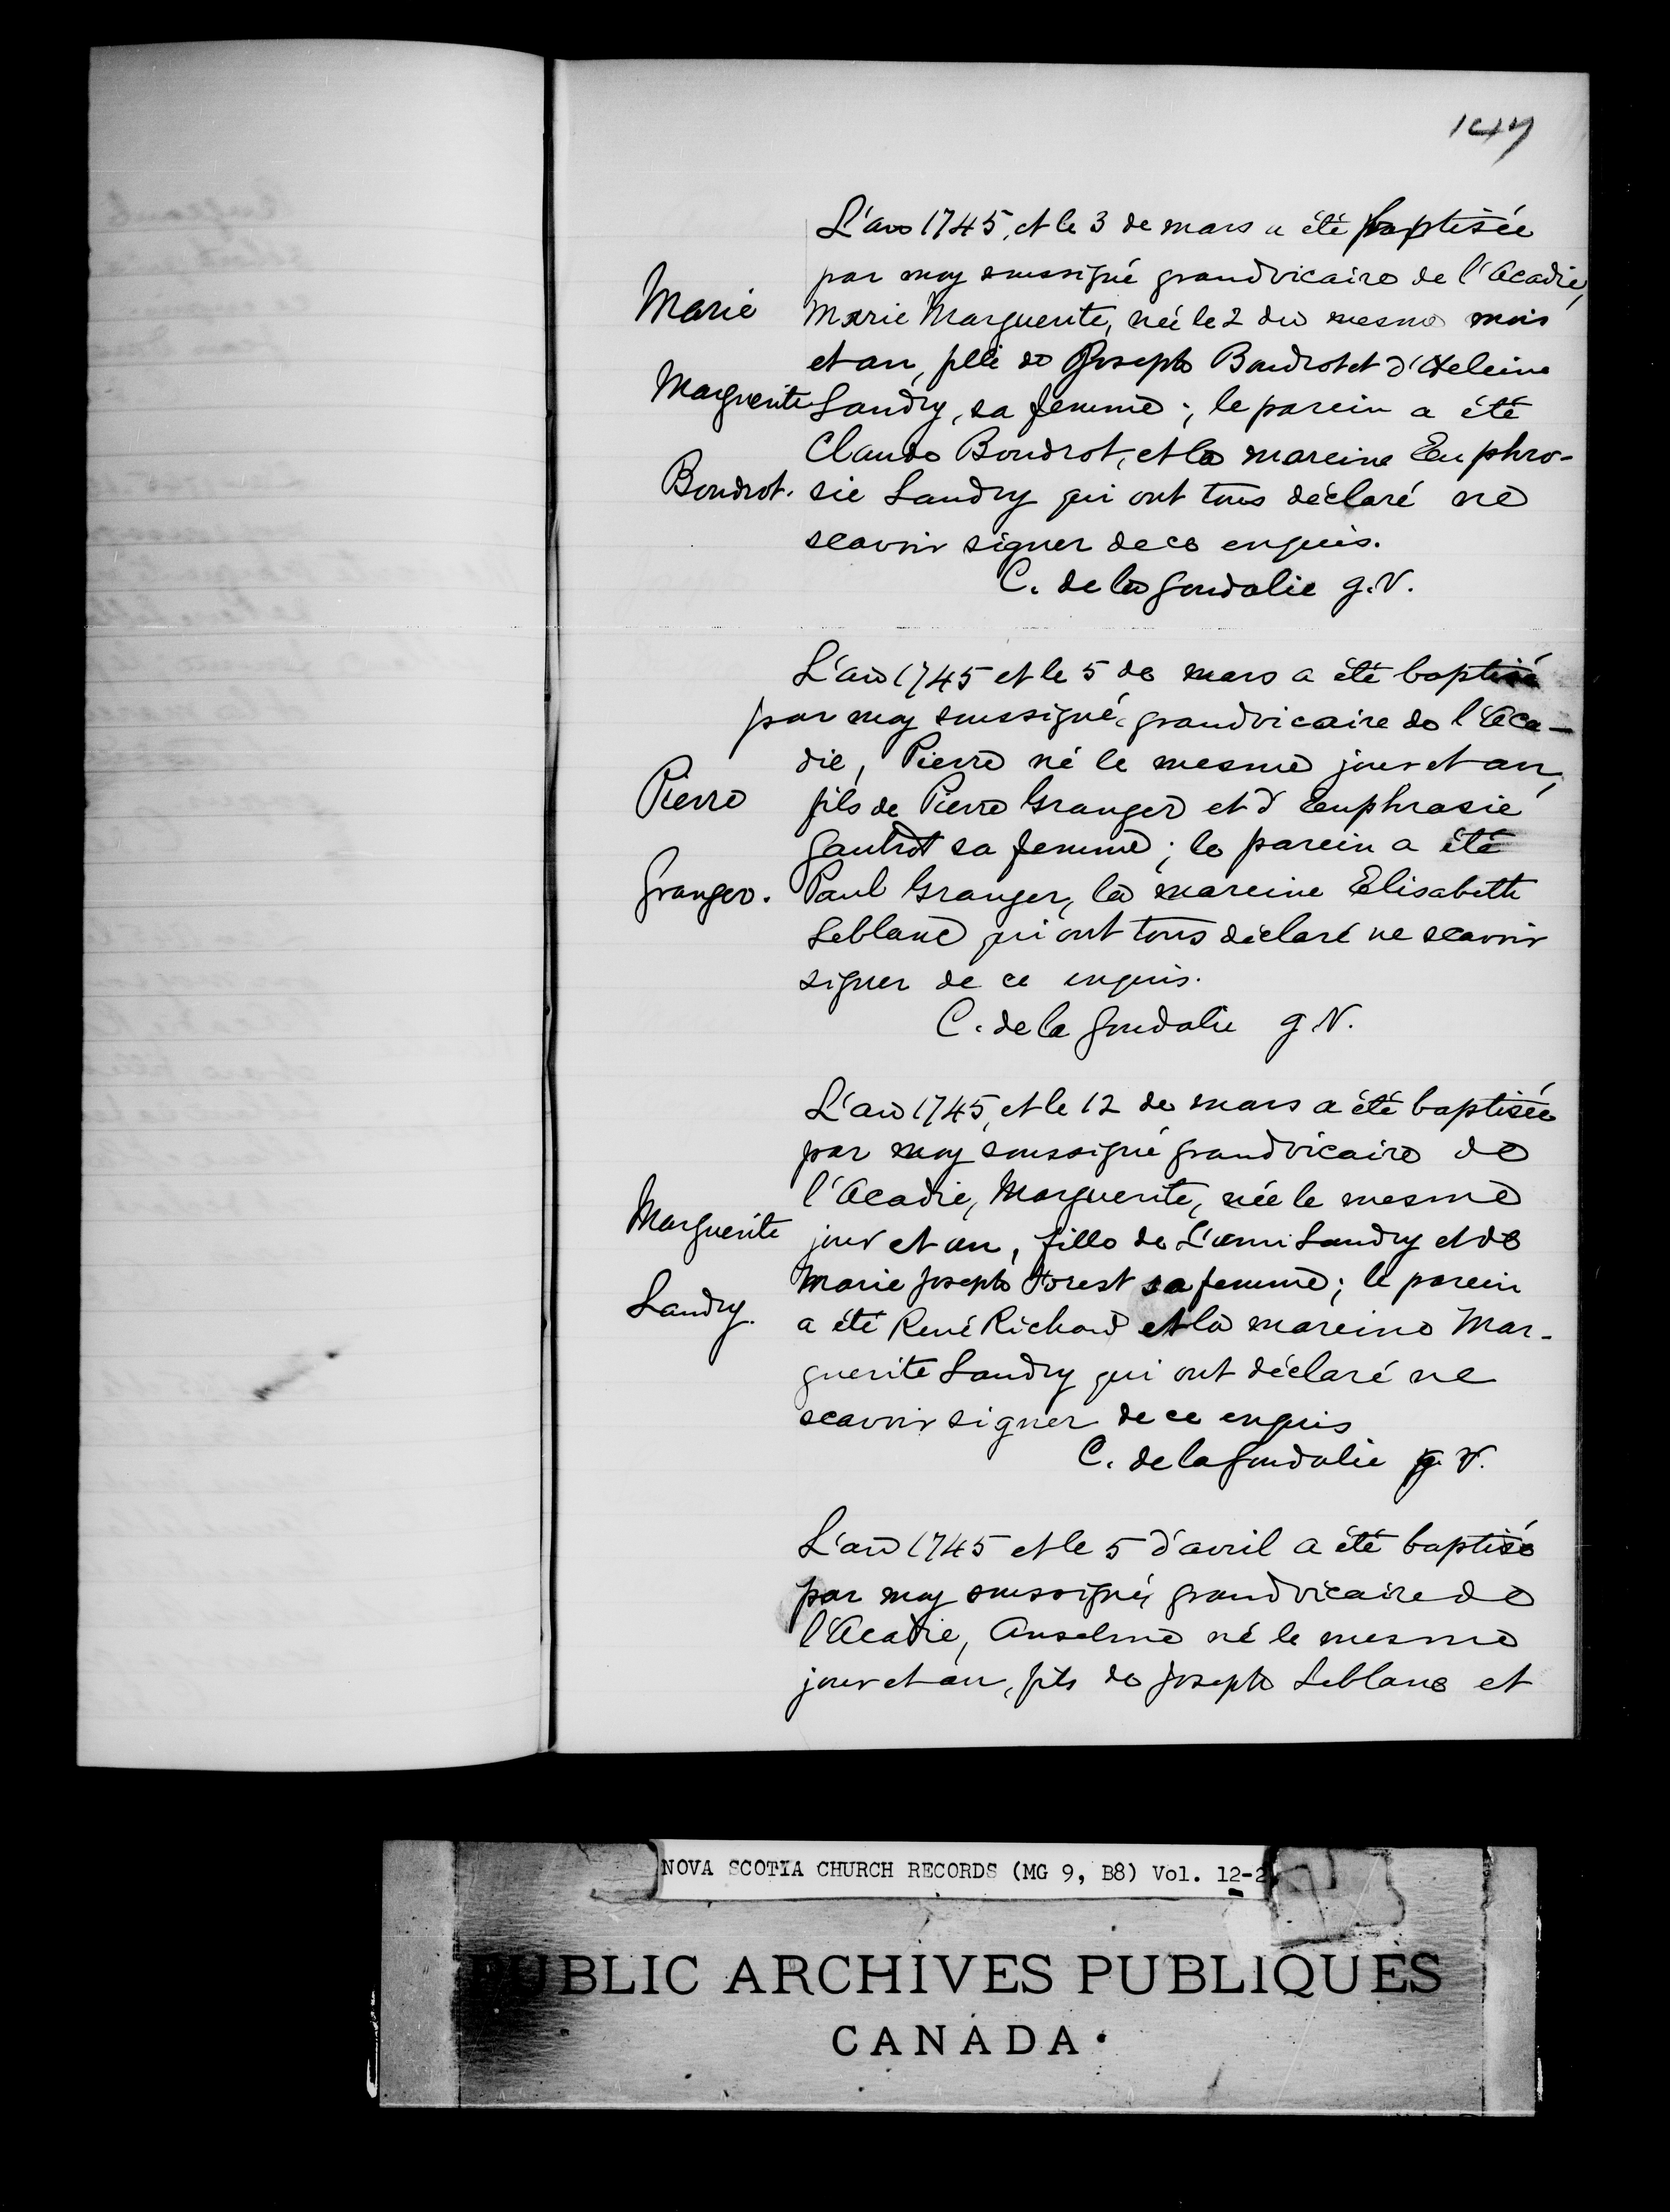 147
L'an 1745, et le 3 de mars a été baptisée
par moy soussigné grandvicaire de l'Acadie,
Marie Marguerite, née le 2 du mesme mois
et an, fille de Joseph Boudrot et d'Heleine
Landry, sa femme; le parein a été
Claude Boudrot, et la mareine Euphro-
sie Landry qui ont tous déclaré ne
scavoir signer de ce enquis.
C. de la Goudalie g. V.
Marie
Marguerite
Boudrot.
L'an 1745 et le 5 de mars a été baptisé
par moy soussigné, grandvicaire de l'Aca-
die, Pierre né le mesme jour et an,
fils de Pierre Granger et d'Euphrasie
Gautrot sa femme; le parein a été
Paul Granger, la mareine Elisabeth
Leblanc qui ont tous déclaré ne scavoir
signer de ce enquis.
C. de la Goudalie g V.
Pierre
Granger.
L'an 1745, et le 12 de mars a été baptisée
par moy soussigné grandvicaire de
l'Acadie, Marguerite, née le mesme
jour et an, fille de Landry et de
Marie Joseph Forest sa femme; le parein
a été René Richard et la mareine Mar-
guerite Landry qui ont déclaré ne
scavoir signer de ce enquis
C. de la Goudalie g. V.
Marguerite
Landry.
L'an 1745 et le 5 d'avril a été baptisé
par moy soussigné, grandvicaire de
l'Acadie, Anselme né le mesme
jour et an, fils de Joseph Leblanc et
NOVA SCOTIA CHURCH RECORDS (MG 9, B8) Vol. 12-2
PUBLIC ARCHIVES PUBLIQUES
CANADA